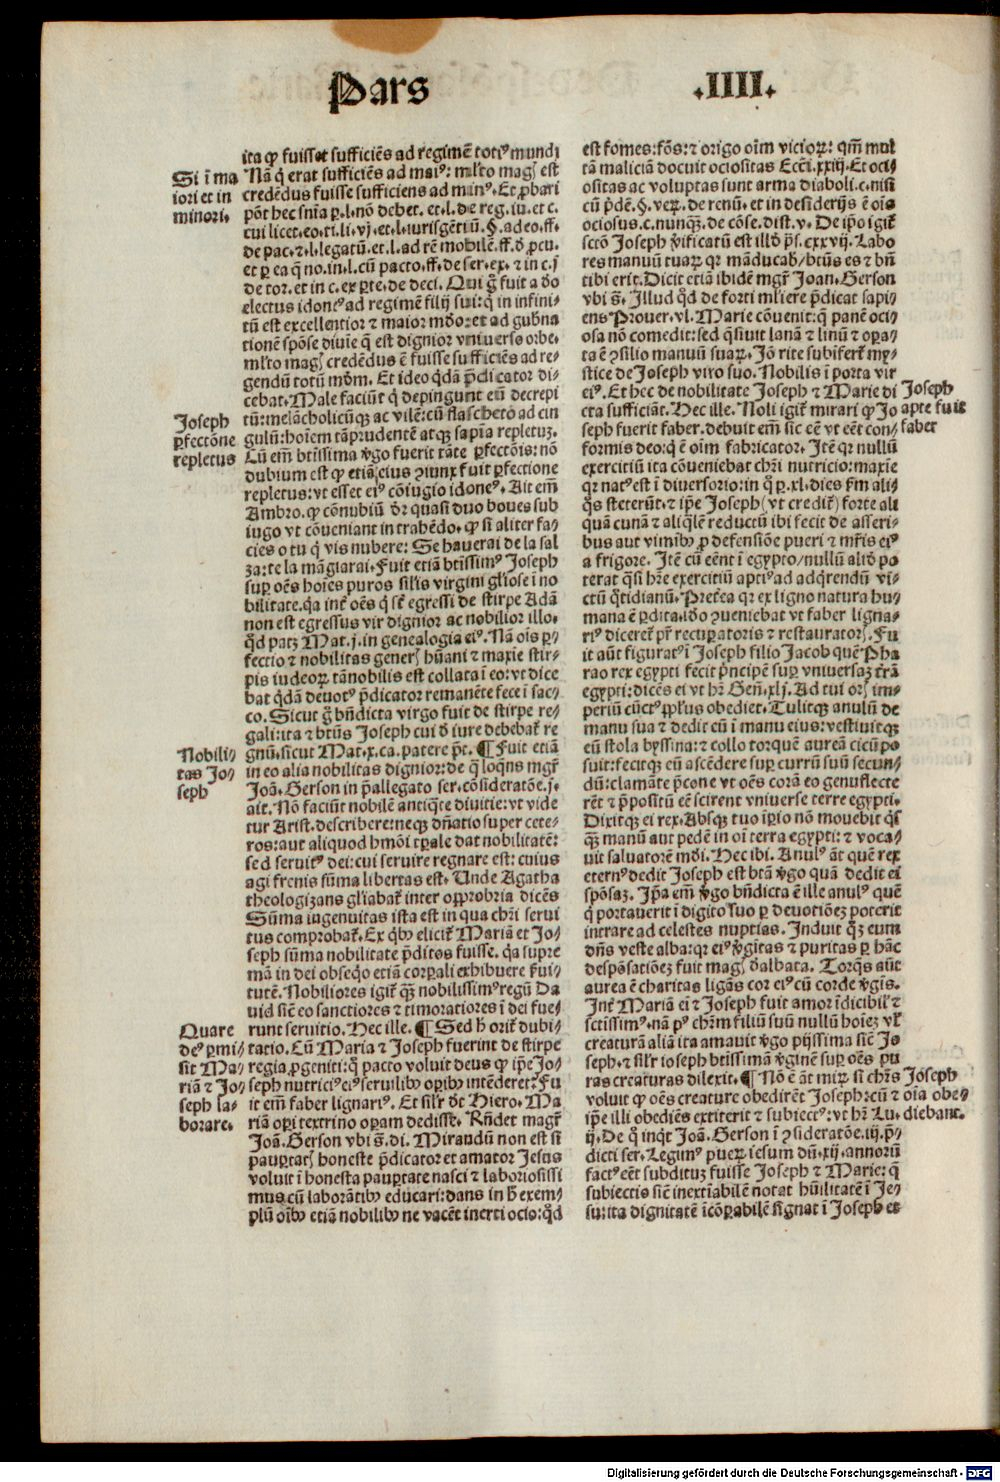 Pars .IIII.
ita ꝙ fuisset sufficiēs ad regimē totiꝰ mundi
Si ī ma
iori et in
minori.
Nā q̄ erat sufficiēs ad maiꝰ: ml̓to magꝭ est
credēdus fuisse sufficiens ad minꝰ. Et ꝓbari
pōt hec sn̄ia ꝑ .l. nō debet. et .l. de reg. iu. et c.
cui licet. eo. ti. li. vj. et .l. iurisgētiū. §. adeo. ff.
de pac. ⁊ .l. legatū. et .l. ad rē mobilē. ff. d̓ ꝓcu.
et ꝑ ea q̄ no. in .l. cū pacto. ff. de ser. ex. ⁊ in c. j
de tor. et in c. ex ꝑte. de deci. Qui g̊ fuit a d̓o
electus idoneꝰ ad regimē filij sui: q̇ in infini⸗
tū est excellentior ⁊ maior mūdo: et ad gub̓na
tionē spōse diuīe q̄ est dignior vniuerso orbe.
ml̓to magꝭ credēdus ē fuisse sufficiēs ad re⸗
gendū totū mūdm. Et ideo q̇dā p̄dicator di⸗
cebat. Male faciūt q̇ depingunt eū decrepi
Joseph
ꝑfectōne
repletus
tū: melācholicūqꝫ ac vilē: cū flascheto ad cin
gulū: hoīem tā prudentē atqꝫ sapīa repletuꝫ.
Cū em̄ btīssima v̓go fuerit tāte ꝑfectōis: nō
dubium est ꝙ etiā eius ꝯiunx fuit ꝑfectione
repletus: vt esset eiꝰ cōiugio idoneꝰ. Ait em̄
Ambro. ꝙ cōnubiū d̓r quasi duo boues sub
iugo vt cōueniant in trahēdo. ꝙ si aliter fa⸗
cies o tu q̇ vis nubere: Se hauerai de la sal
za: te la māgiarai. Fuit etiā btīssimꝰ Joseph
suꝑ oēs hoīes puros sil̓is virgini gl̓iose ī no
bilitate. q̇a int̓ oēs q̇ st̄ egressi de stirpe Adā
non est egressus vir dignior ac nobilior illo.
qd̓ patꝫ Mat. j. in genealogia eiꝰ. Nā oīs ꝑ⸗
fectio ⁊ nobilitas generꝭ hūani ⁊ maxie stir⸗
pis iudeoꝝ tā nobilis est collata ī eo: vt dice
bat q̇dā deuotꝰ p̄dicator remanēte fece ī sac⸗
co. Sicut g̊ bn̄dicta virgo fuit de stirpe re⸗
gali: ita ⁊ btūs Joseph cui d̓ iure debebat̓ re
Nobili⸗
tas Jo⸗
seph
gnū. sicut Mat. x. ca. patere pōt. ¶ Fuit etiā
in eo alia nobilitas dignior: de q̄ loq̄ns mgr̓
Joā. Gerson in p̄allegato ser. cōsideratōe .j.
ait. Nō faciūt nobilē antiq̄te diuitie: vt vide
tur Arist. describere: neqꝫ dn̄atio super cete⸗
ros: aut aliquod hmōi tꝑale dat nobilitatē:
sed seruitꝰ dei: cui seruire regnare est: cuius
agi frenis sūma libertas est. Unde Agatha
theologizans gl̓iabat̓ inter opꝓbria dicēs
Sūma ingenuitas ista est in qua chr̄i serui
tus comprobat̓. Ex qb̓ elicit̓ Mariā et Jo⸗
seph sūma nobilitate p̄ditos fuisse. q̇a supre
mā in dei obseq̇o etiā corꝑali exhibuere fūi⸗
tutē. Nobiliores igit̓ qꝫ nobilissimꝰ regū Da
uid siē eo sanctiores ⁊ timoratiores ī dei fue⸗
Quare
deꝰ ꝑmi⸗
sit Ma⸗
riā ⁊ Jo⸗
seph la⸗
borare.
runt seruitio. Hec ille. ¶ Sed h̓ orit̓ dubi⸗
tatio. Cū Maria ⁊ Joseph fuerint de stirpe
regia ꝓgeniti: q̄ pacto voluit deus ꝙ ip̄e Jo⸗
seph nutriciꝰ eiꝰ seruilib̓ oꝑib̓ intēderet? Fu
it em̄ faber lignariꝰ. Et sil̓r d̓t Hiero. Ma
riā oꝑi textrino oꝑam dedisse. Rn̄det magr̓
Joā. Gerson vbi s̄. di. Mirandū non est si
pauꝑtatꝭ honeste p̄dicator et amator Jesus
voluit ī honesta pauꝑtate nasci ⁊ laboriosissi
mus cū laborātib̓ educari: dans in h̓ exem⸗
plū oīb̓ etiā nobilib̓ ne vacēt inerti ocio: qd̓
est fomes: fōs: ⁊ origo oīm vicioꝝ: qm̄ mul
tā maliciā docuit ociositas Ecci. xxiij. Et oci⸗
ositas ac voluptas sunt arma diaboli. c. nisi
cū p̄dē. §. veꝝ. de renū. et in desiderijs ē oīs
ociosus. c. nunqꝫ. de cōse. dist. v. De ip̄o igit̓
sctō Joseph v̓ificatū est illd̓ ps̄. cxxvij. Labo
res manuū tuaꝝ qꝛ māducab̓/ btūs es ⁊ bn̄
tibi erit. Dicit etiā ibidē mgr̓ Joan. Gerson
vbi s̄. Illud qd̓ de forti ml̓iere p̄dicat sapi⸗
ens Prouer. vl. Marie cōuenit: q̄ panē oci⸗
osa nō comedit: sed q̄siuit lanā ⁊ linū ⁊ oꝑa⸗
ta ē ꝯsilio manuū suaꝝ. Jō rite subinfert̓ my⸗
stice de Joseph viro suo. Nobilis ī porta vir
eiꝰ. Et hec de nobilitate Joseph ⁊ Marie di
Joseph
apte fuit
faber
cta sufficiāt. Hec ille. Noli igit̓ mirari ꝙ Jo
seph fuerit faber. debuit em̄ sic eē vt eēt con⸗
formis deo: q̇ ē oīm fabricator. Itē qꝛ nullū
exercitiū ita cōueniebat chr̄i nutricio: maxie
qꝛ natꝰ est ī diuersorio: in q̇ ꝑ .xl. dies fm̄ ali⸗
q̄s steterūt. ⁊ ip̄e Joseph (vt credit̓) forte ali
quā cunā ⁊ aliq̄lē reductū ibi fecit de asseri⸗
bus aut vimib̓ ꝓ defensiōe pueri ⁊ mr̄is eiꝰ
a frigore. Itē cū eēnt ī egypto/ nullū aliud po
terat q̄si hr̄e exercitiū aptiꝰ ad adq̇rendū vi⸗
ctū q̇tidianū. Preterea qꝛ ex ligno natura hu⸗
mana ē ꝑdita. id̓o ꝯueniebat vt faber ligna⸗
riꝰ diceret̓ pr̄ recuꝑatoris ⁊ restauratorꝭ. Fu⸗
it aūt figuratꝰ ī Joseph filio Jacob quē Pha
rao rex egypti fecit p̄ncipē suꝑ vniuersaꝫ tr̄ā
egypti: dicēs ei vt hr̄ Gen̄. xlj. Ad tui orꝭ im⸗
periū cūctꝰ ppl̓us obediet. Tulitqꝫ anulū de
manu sua ⁊ dedit eū ī manu eius: vestiuitqꝫ
eū stola byssina: ⁊ collo torquē aureā circū po
suit: fecitqꝫ eū ascēdere suꝑ currū suū secun⸗
dū: clamāte p̄cone vt oēs corā eo genuflecte
rēt ⁊ p̄positū eē scirent vniuerse terre egypti.
Dixitqꝫ ei rex. Absqꝫ tuo iꝑio nō mouebit q̄s
qꝫ manū aut pedē in oī terra egypti: ⁊ voca⸗
uit saluatorē mūdi. Hec ibi. Anulꝰ āt quē rex
eternꝰ dedit Joseph est btā v̓go quā dedit ei
spōsaꝫ. Ip̄a em̄ v̓go bn̄dicta ē ille anulꝰ quē
q̇ portauerit ī digito suo ꝑ deuotiōeꝫ poterit
intrare ad celestes nuptias. Induit qꝫ eum
dn̄s veste alba: qꝛ eiꝰ v̓gītas ⁊ puritas ꝑ hāc
despōsatiōeꝫ fuit magꝭ d̓albata. Torq̄s aūt
aurea ē charitas ligās cor eiꝰ cū corde v̓gīs.
Int̓ Mariā ei ⁊ Joseph fuit amor īdicibil̓ ⁊
sctissimꝰ. nā pꝰ chr̄m filiū suū nullū hoīeꝫ vl̓
creaturā aliā ita amauit v̓go pijssima siē Jo
seph. ⁊ sil̓r ioseph btīssimā v̓ginē suꝑ oēs pu
Joseph
oīa obe⸗
diebant.
ras creaturas dilexit. ¶ Nō ē āt miꝝ si chr̄s
voluit ꝙ oēs creature obedirēt Joseph: cū ⁊
ip̄e illi obediēs extiterit ⁊ subiectꝰ: vt hr̄ Lu.
ij. De q̇ inq̇t Joā. Gerson ī ꝯsideratōe .iij. p̄⸗
dicti ser. Legimꝰ pueꝝ iesum dū .xij. annorū
factꝰ eēt subdituꝫ fuisse Joseph ⁊ Marie: q̄
subiectio siē inextīabilē notat hūilitatē ī Je⸗
su: ita dignitatē īcōꝑabilē signat ī Joseph et
Digitalisierung gefördert durch die Deutsche Forschungsgemeinschaft - DFG